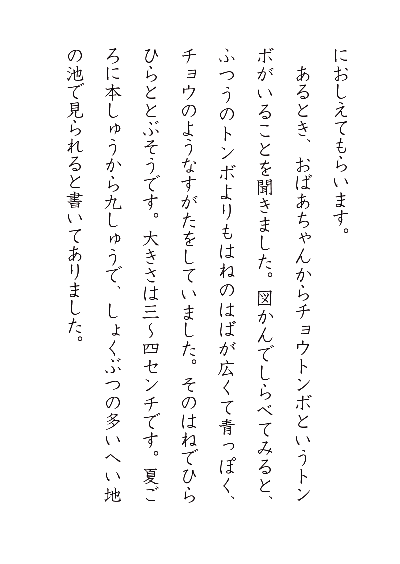 におしえてもらいます。
　あるとき、おばあちゃんからチョウトンボというトン
ボがいることを聞きました。図かんでしらべてみると、
ふつうのトンボよりもはねのはばが広くて青っぽく、
チョウのようなすがたをしていました。そのはねでひら
ひらととぶそうです。大きさは三〜四センチです。夏ご
ろに本しゅうから九しゅうで、しょくぶつの多いへい地
の池で見られると書いてありました。